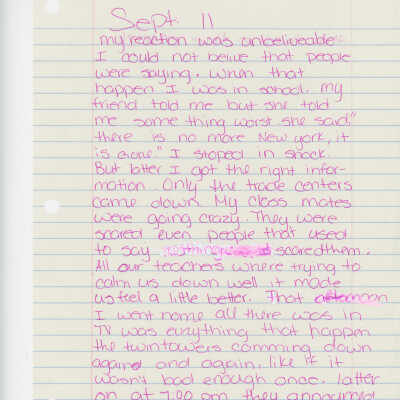 Sept. 11
my reaction was unbeliveable
I could not belive that people
were saying. When that
happen I was in school. my
friend told me but she told
me some thing worst she said,"
there is no more New york, it
is gone." I stoped in shock.
But latter I got the right infor-
mation. Only the trade centers
came down. My Class mates
were going crazy. They were
scared even people that used
to say scaredthem.
All our teachers where trying to
calm us down well it made
us feel a little better. That afternoon
I went home all there was in
TV was evrything that happen
the twin towers comming down
again and again. like if it
wasn't bad enough once. latter
on at 7:00 pm they annoumed